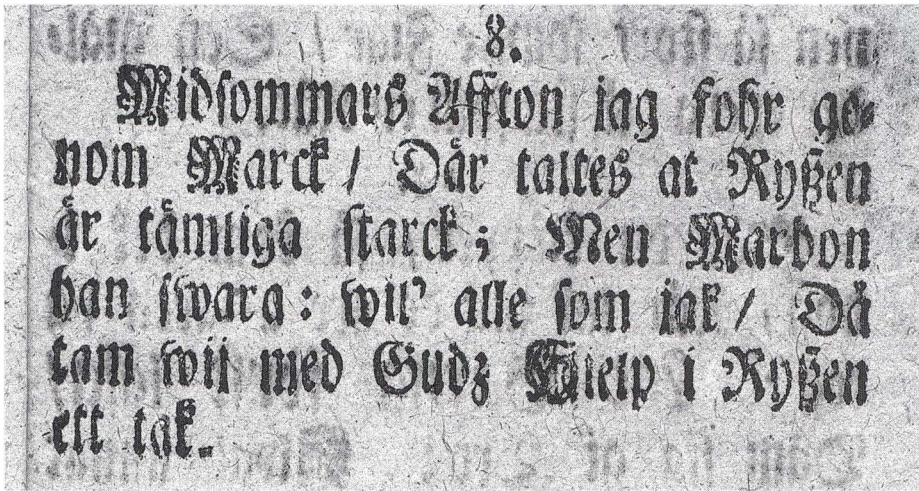 8.
Midsommars Affton jag fohr ge-
nom Marck / Där taltes at Ryßen
är tämliga starck; Men Marbon
han swara: wil' alle som jak / Då
tam wij med Gudz Hielp i Ryßen
ett tak.